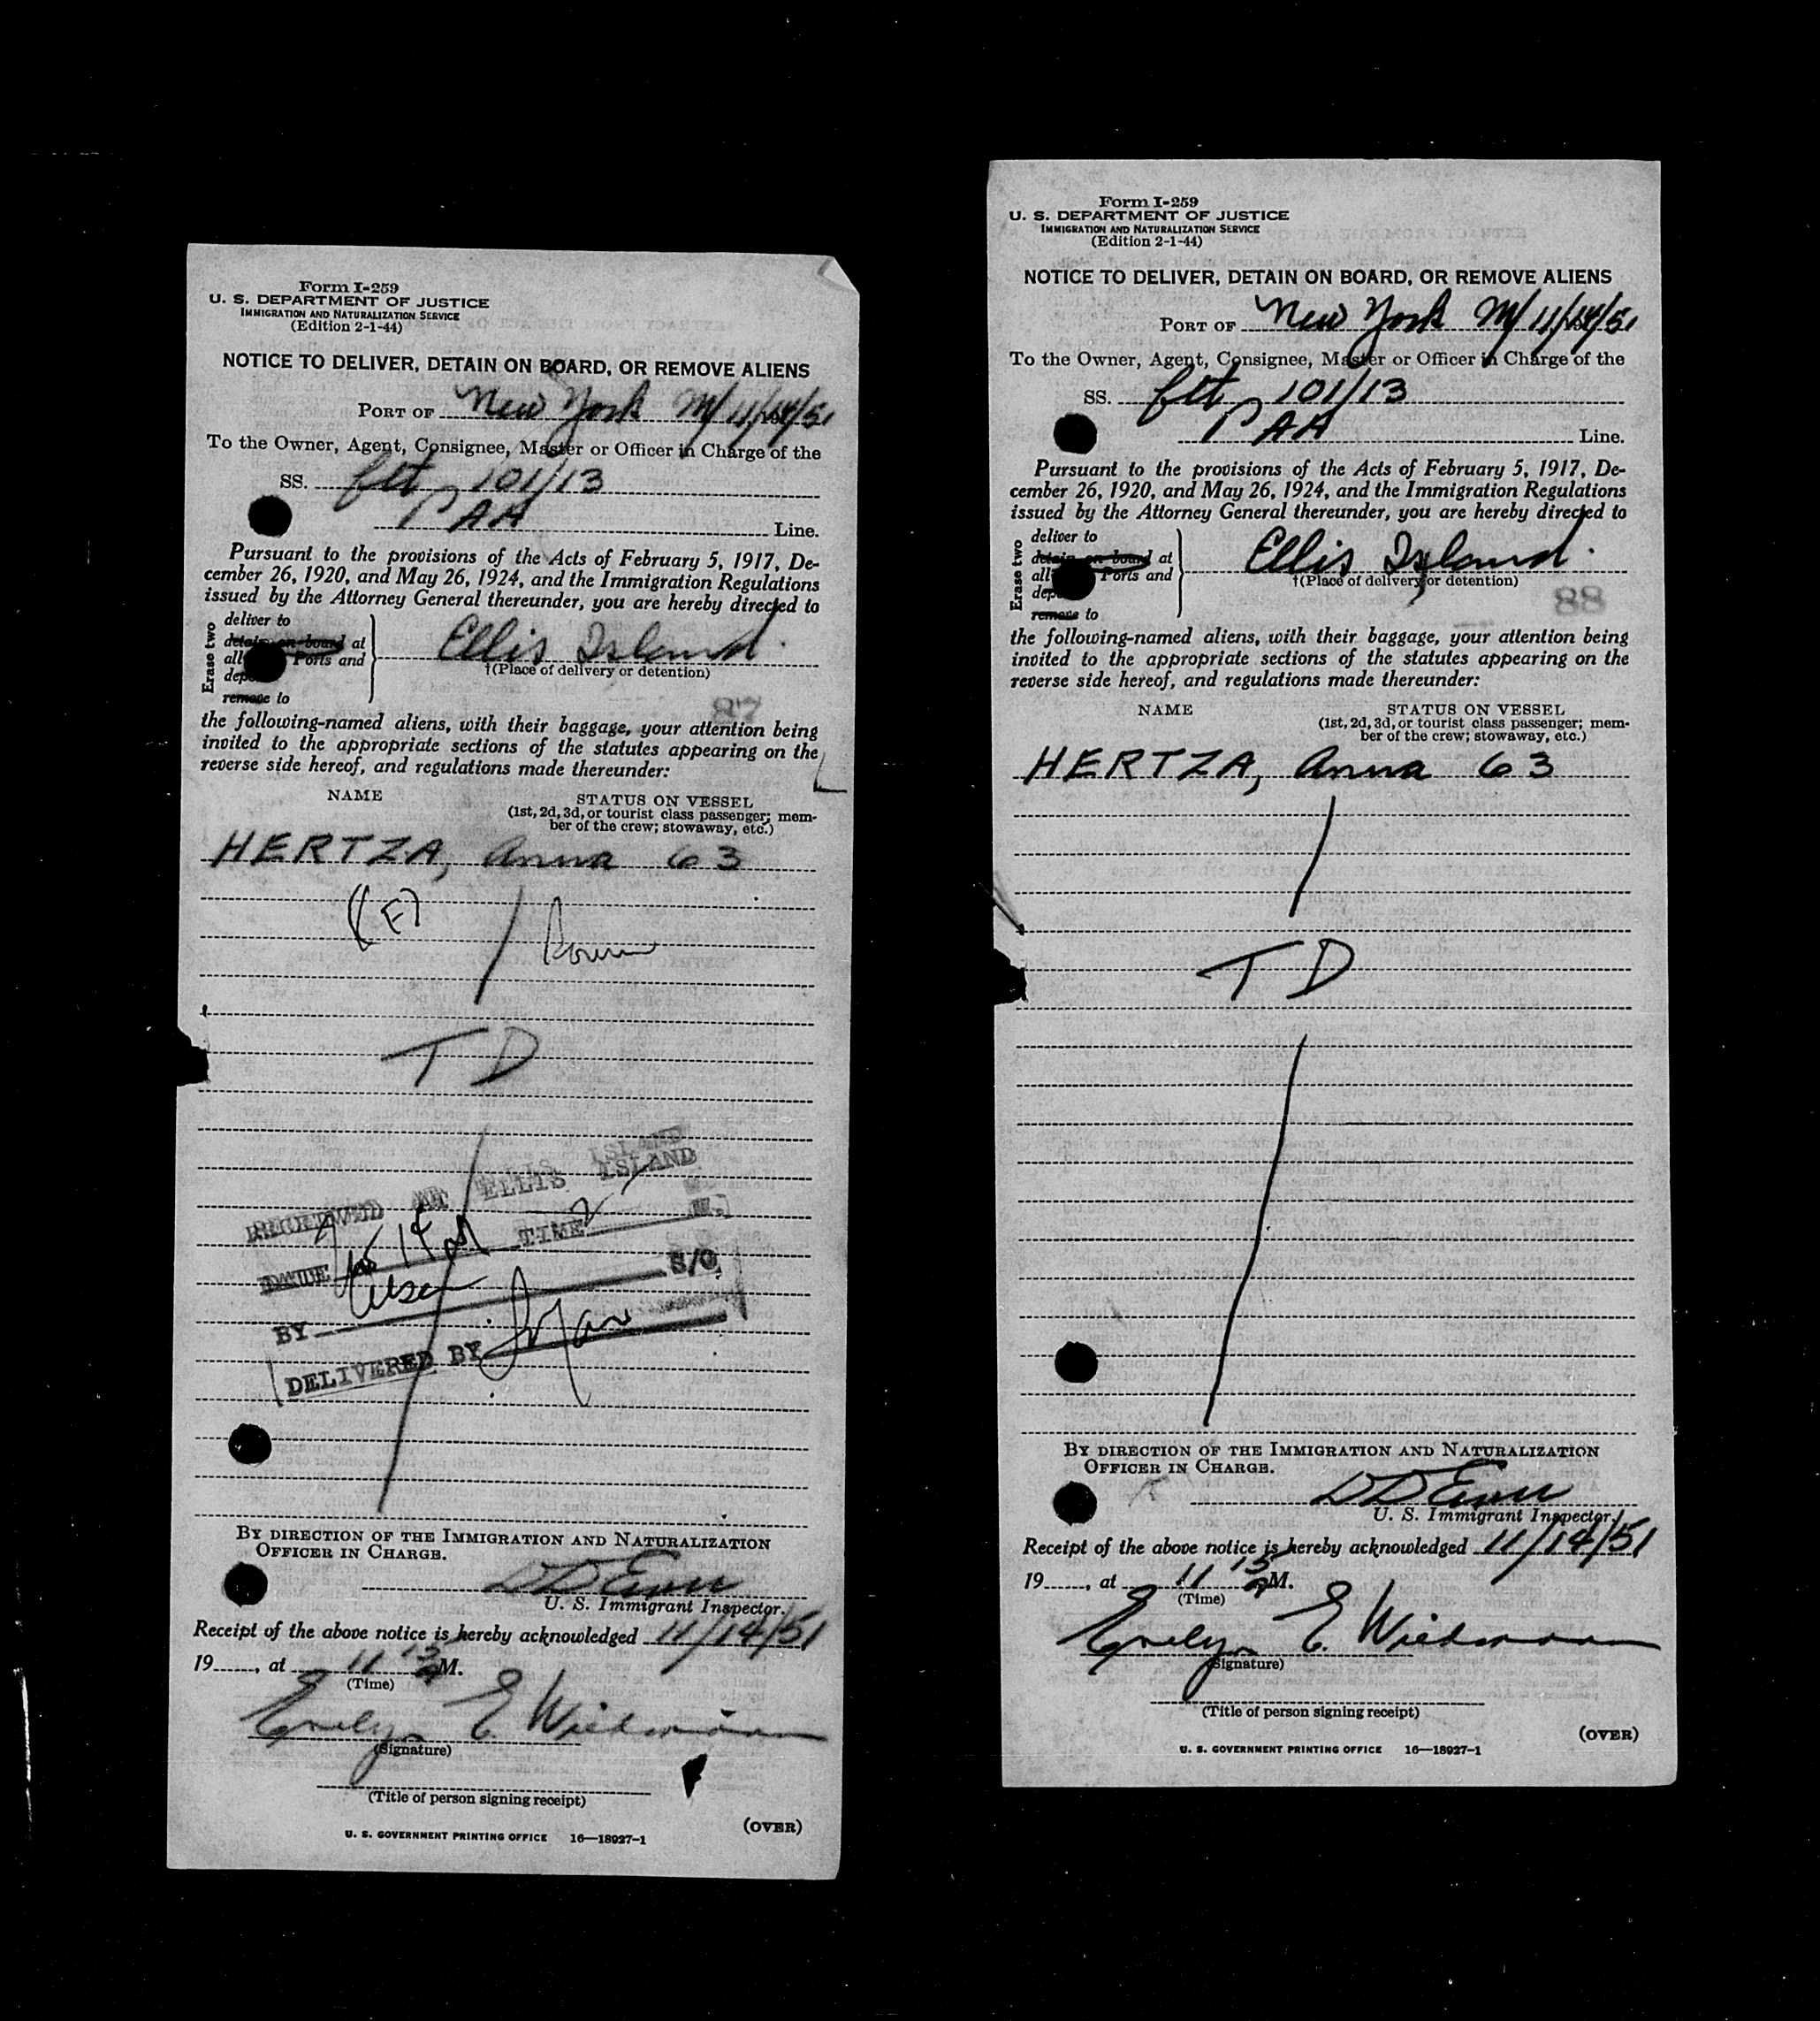 Form I-259
U. S. DEPARTMENT OF JUSTICE
IMMIGRATION AND NATURALIZATION SERVICE
(Edition 2-1-44)
NOTICE TO DELIVER, DETAIN ON BOARD, OR REMOVE ALIENS
PORT OF New York 11/14/51
To the Owner, Agent, Consignee, Master or Officer in Charge of the
SS. flt 101/13
PAA Line.
Pursuant to the provisions of the Acts of February 5, 1917, De-
cember 26, 1920, and May 26, 1924, and the Immigration Regulations
issued by the Attorney General thereunder, you are hereby directed to
Erase two
deliver to
detain on board at
all Ports and
remove to
Ellis Island.
†(Place of delivery or detention)
87
the following-named aliens, with their baggage, your attention being
invited to the appropriate sections of the statutes appearing on the
reverse side hereof, and regulations made thereunder:
NAME STATUS ON VESSEL
(1st, 2d, 3d, or tourist class passenger; mem-
ber of the crew; stowaway, etc.)
HERTZA, Anna 63
(F)
T D
RECEIVED AT ELLIS ISLAND
DATE TIME M.
BY S/O
DELIVERED BY
BY DIRECTION OF THE IMMIGRATION AND NATURALIZATION
OFFICER IN CHARGE.
U. S. Immigrant Inspector.
Receipt of the above notice is hereby acknowledged 11/14/51
19____, at 11 15 M.
(Time)
Evelyn E. Wiedemann
(Signature)
(Title of person signing receipt)
(OVER)
U. S. GOVERNMENT PRINTING OFFICE 16—18927-1
Form I-259
U. S. DEPARTMENT OF JUSTICE
IMMIGRATION AND NATURALIZATION SERVICE
(Edition 2-1-44)
NOTICE TO DELIVER, DETAIN ON BOARD, OR REMOVE ALIENS
PORT OF New York 11/14/51
To the Owner, Agent, Consignee, Master or Officer in Charge of the
SS. flt 101/13
PAA Line.
Pursuant to the provisions of the Acts of February 5, 1917, De-
cember 26, 1920, and May 26, 1924, and the Immigration Regulations
issued by the Attorney General thereunder, you are hereby directed to
Erase two
deliver to
detain on board at
all Ports and
remove to
Ellis Island.
†(Place of delivery or detention)
88
the following-named aliens, with their baggage, your attention being
invited to the appropriate sections of the statutes appearing on the
reverse side hereof, and regulations made thereunder:
NAME STATUS ON VESSEL
(1st, 2d, 3d, or tourist class passenger; mem-
ber of the crew; stowaway, etc.)
HERTZA, Anna 63
T D
BY DIRECTION OF THE IMMIGRATION AND NATURALIZATION
OFFICER IN CHARGE.
U. S. Immigrant Inspector.
Receipt of the above notice is hereby acknowledged 11/14/51
19____, at 11 15 M.
(Time)
Evelyn E. Wiedemann
(Signature)
(Title of person signing receipt)
(OVER)
U. S. GOVERNMENT PRINTING OFFICE 16—18927-1